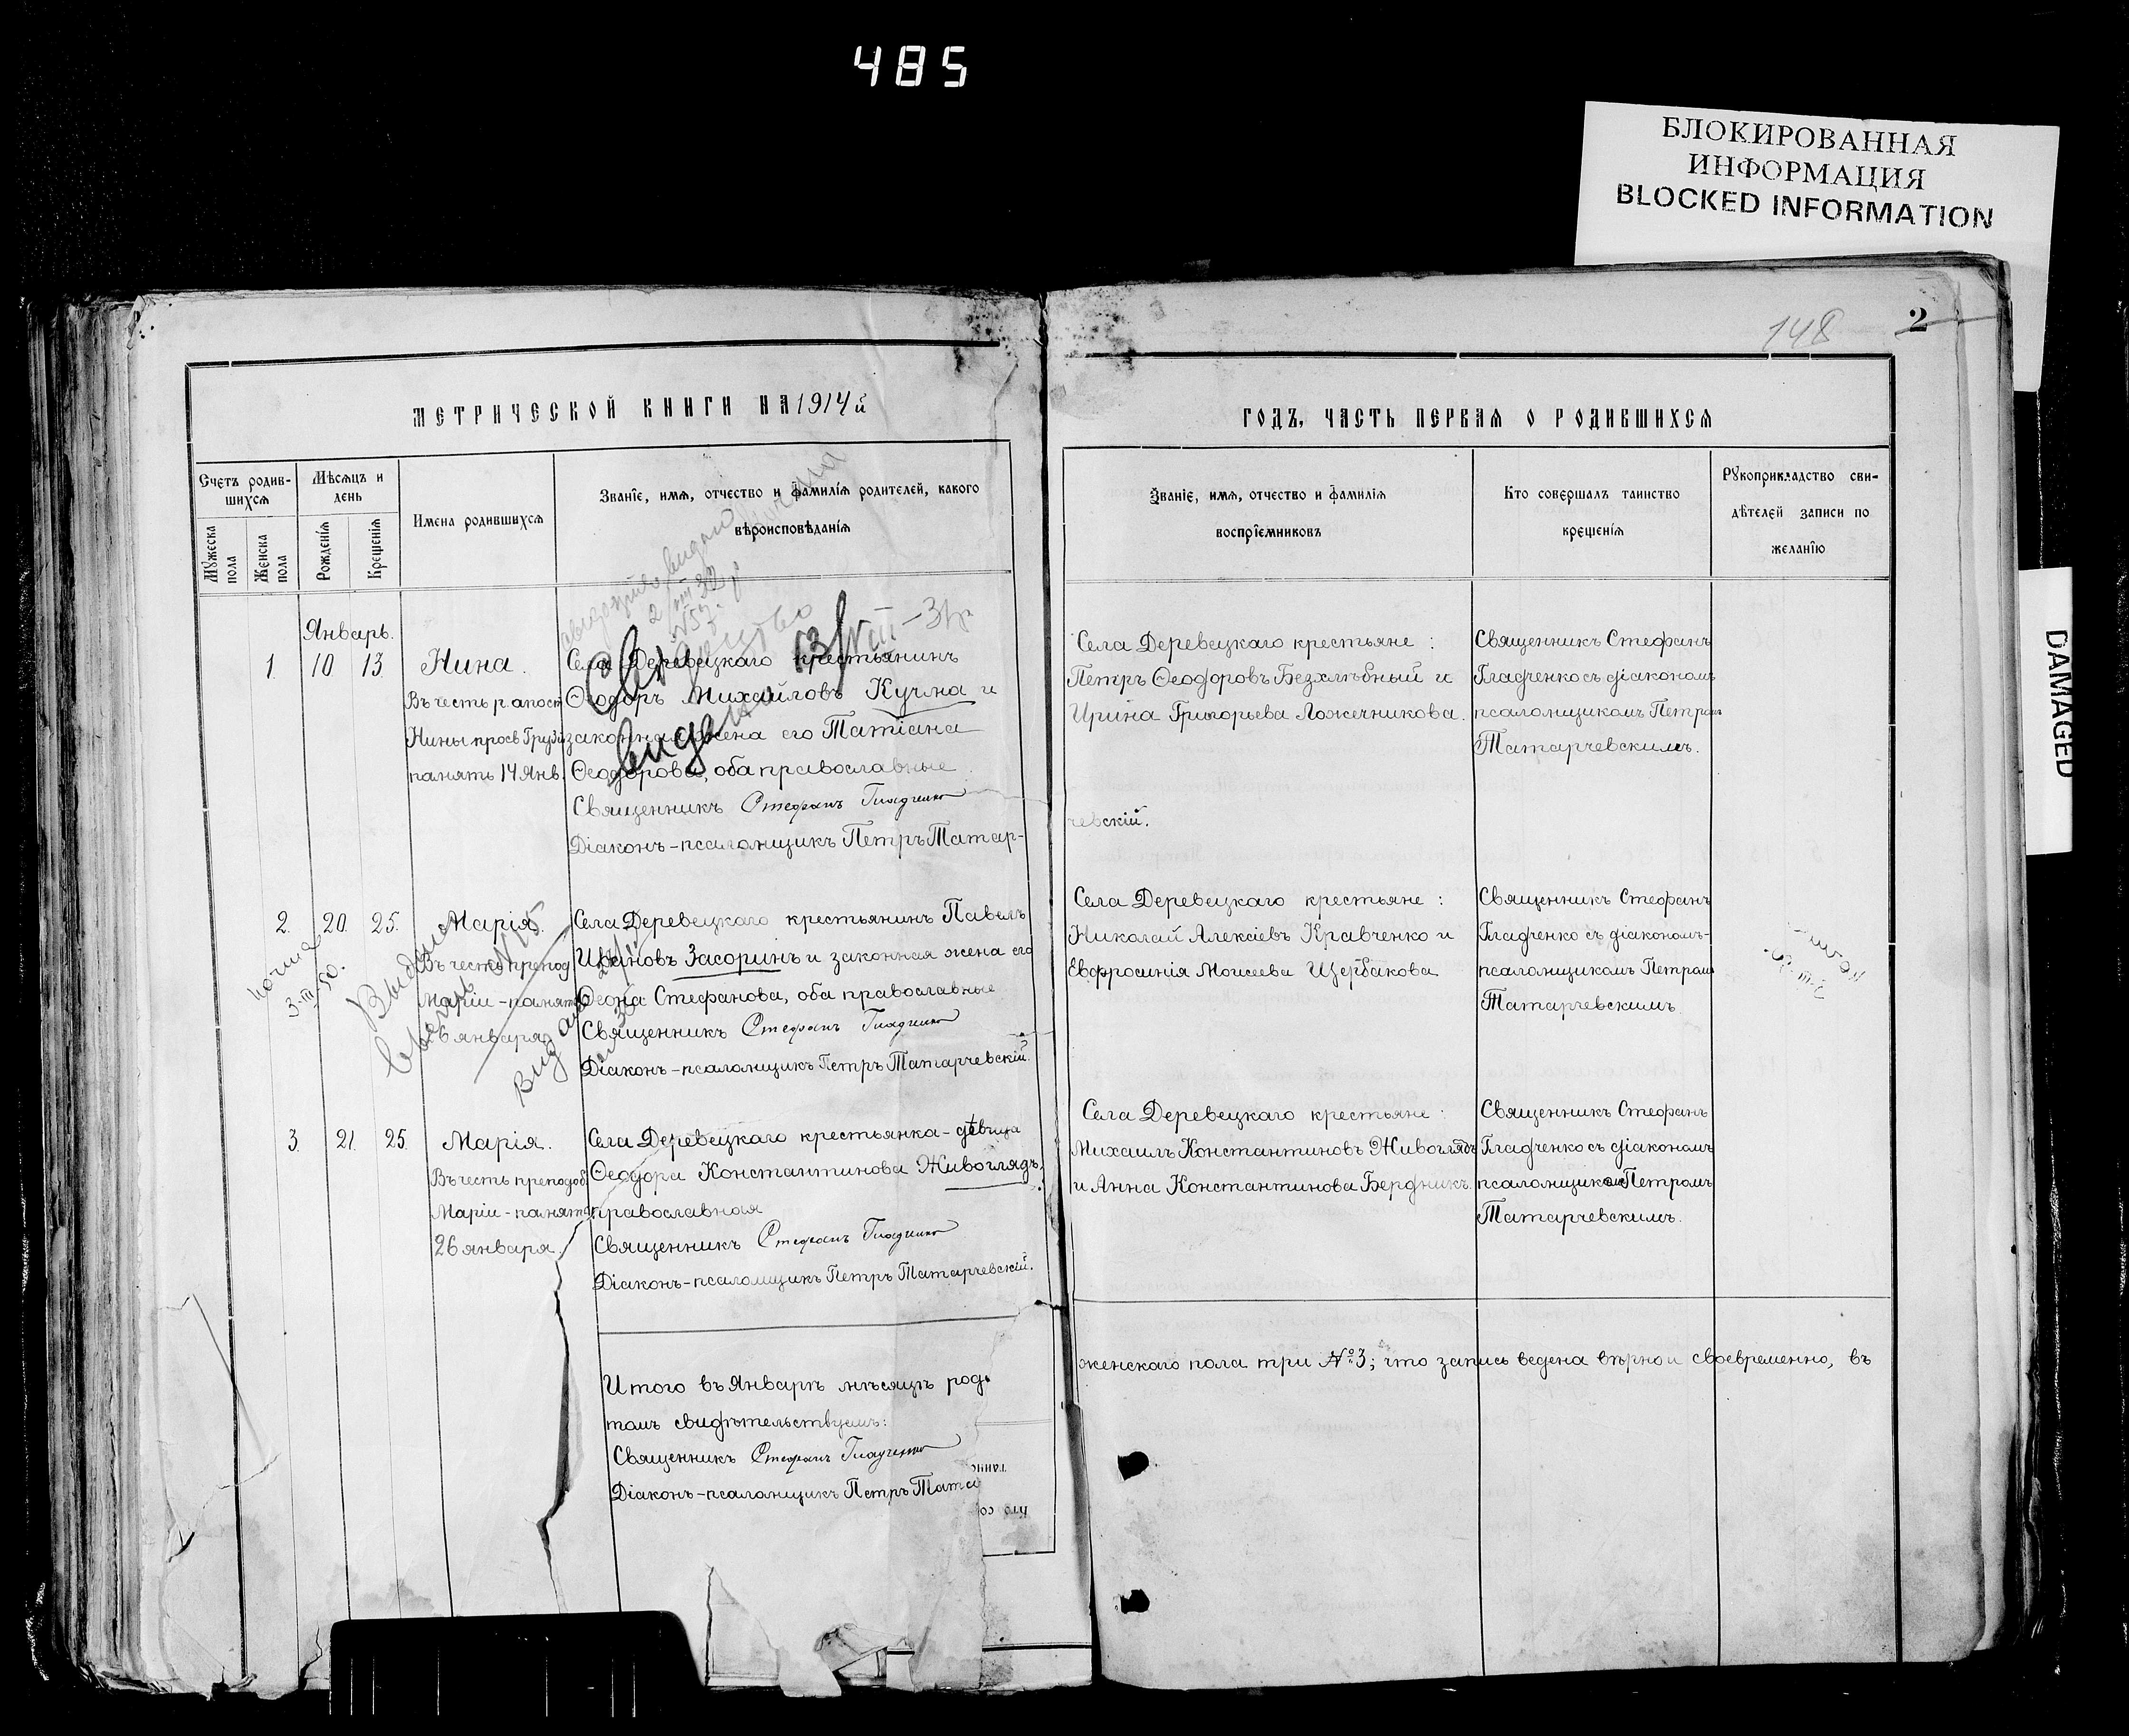 485
БЛОКИРОВАННАЯ
ИНФОРМАЦИЯ
BLOCKED INFORMATION
DAMAGED
148
2
МЕТРИЧЕСКОЙ КНИГИ НА 1914й
Счетъ родив-
шихся
Мѣсяцъ и
день
Мужеска
пола
Женска
пола
Рожденія
Крещенія
Имена родившихся
Званіе, имя, отчество и фамилія родителей, какого
вѣроисповѣданія
Январь.
1. 10 13 Нина.
Въ честь р. апост
Нины просв Груз
память 14 Янв.
Села Деревецкаго крестьянинъ
Ѳеодоръ Михайловъ Кучма и
законная жена его Татіана
Ѳеодорова, оба православные
Священникъ Стефанъ Гладченко
Діаконъ-псаломщикъ Петръ Татар-
Свидетельство
выдано
13/VIII-31р
2. 20. 25. Марія.
Въ честь препод
Маріи - память
26 января
Села Деревецкаго крестьянинъ Павелъ
Ивановъ Засоринъ и законная жена его
Ѳеона Стефанова, оба православные
Священникъ Стефанъ Гладченко
Діаконъ-псаломщикъ Петръ Татарчевскій.
3-III-50.
3. 21. 25. Марія.
Въ честь преподоб
Маріи - память
26 января.
Села Деревецкаго крестьянка-дѣвица
Ѳеодора Константинова Живоглядъ,
православная
Священникъ Стефанъ Гладченко
Діаконъ-псаломщикъ Петръ Татарчевскій.
Итого въ Январѣ мѣсяцѣ род
томъ свидѣтельствуемъ:
Священникъ Стефанъ Гладченко
Діаконъ-псаломщикъ Петръ Тата
Кто со
ГОДЪ, ЧАСТЬ ПЕРВАЯ О РОДИВШИХСЯ
Званіе, имя, отчество и фамилія
воспріемниковъ
Кто совершалъ таинство
крещенія
Рукоприкладство сви-
дѣтелей записи по
желанію
Села Деревецкаго крестьяне:
Петръ Ѳеодоровъ Безхлѣбный и
Ирина Григорьева Ложечникова.
чевскій.
Священникъ Стефанъ
Гладченко съ діакономъ
псаломщикомъ Петромъ
Татарчевскимъ.
Села Деревецкаго крестьяне:
Николай Алексіевъ Кравченко и
Евфросинія Моисеева Щербакова
Священникъ Стефанъ
Гладченко съ діакономъ-
псаломщикомъ Петромъ
Татарчевскимъ.
Села Деревецкаго крестьяне:
Михаилъ Константиновъ Живоглядъ
и Анна Константинова Бердникъ.
Священникъ Стефанъ
Гладченко съ діакономъ
псаломщикомъ Петромъ
Татарчевскимъ.
женскаго пола три №3; что запись ведена вѣрно и своевременно, въ